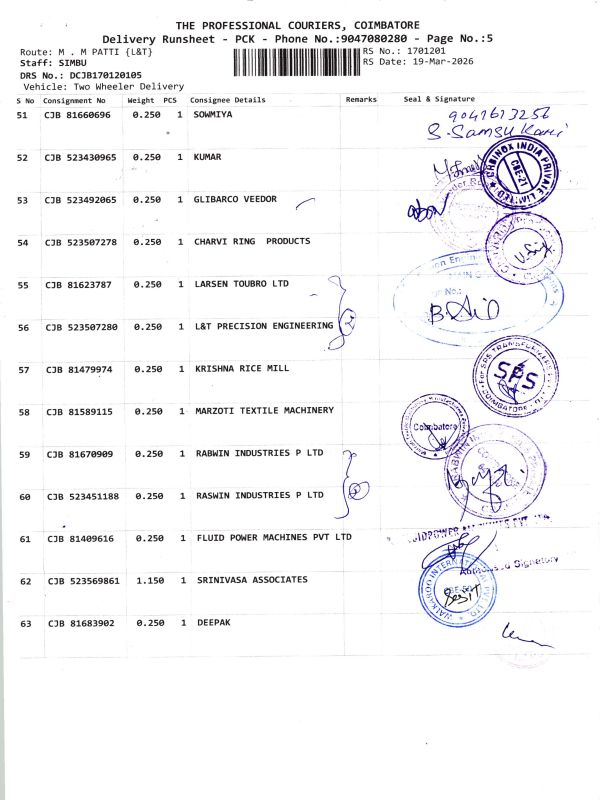 THE PROFESSIONAL COURIERS, COIMBATORE
Delivery Runsheet - PCK - Phone No.:9047080280 - Page No.:5
Route: M . M PATTI {L&T}
RS No.: 1701201
Staff: SIMBU
RS Date: 19-Mar-2026
DRS No.: DCJB170120105
Vehicle: Two Wheeler Delivery
S No Consignment No Weight PCS Consignee Details Remarks Seal & Signature
51 CJB 81660696 0.250 1 SOWMIYA
S. Samsu
52 CJB 523430965 0.250 1 KUMAR
INOX INDIA PRIVATE LIMITED
CBE-21
53 CJB 523492065 0.250 1 GLIBARCO VEEDOR
54 CJB 523507278 0.250 1 CHARVI RING PRODUCTS
55 CJB 81623787 0.250 1 LARSEN TOUBRO LTD
56 CJB 523507280 0.250 1 L&T PRECISION ENGINEERING
57 CJB 81479974 0.250 1 KRISHNA RICE MILL
For SPS TRANSFORMERS
SPS
COIMBATORE
58 CJB 81589115 0.250 1 MARZOTI TEXTILE MACHINERY
Coimbatore
59 CJB 81670909 0.250 1 RABWIN INDUSTRIES P LTD
60 CJB 523451188 0.250 1 RASWIN INDUSTRIES P LTD
61 CJB 81409616 0.250 1 FLUID POWER MACHINES PVT LTD
Signatory
62 CJB 523569861 1.150 1 SRINIVASA ASSOCIATES
WALKAROO INTERNATIONAL PVT LTD
63 CJB 81683902 0.250 1 DEEPAK